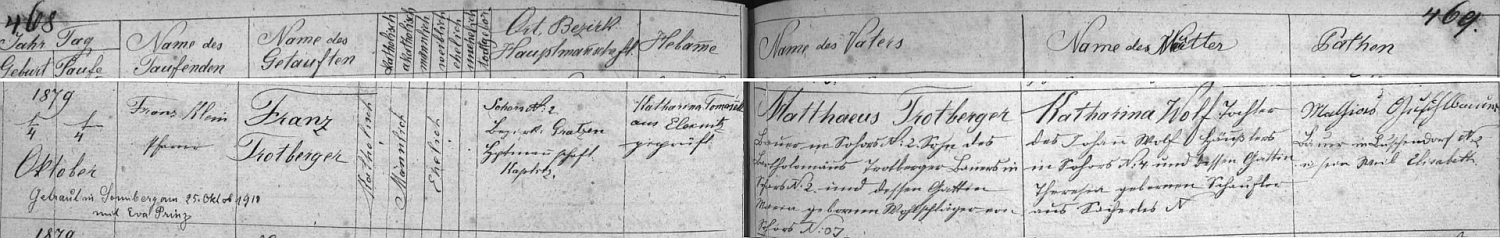 468
469.
Jahr Tag
Geburt Taufe
Name des
Taufenden
Name des
Getauften
katholisch
akatholisch
männlich
weiblich
ehelich
unehelich
totgebor.
Ort, Bezirk
Hauptmannschft.
Hebamme
Name des Vaters
Name des Mutter
Pathen
1879
4 4
Oktober
Getraut in Sonnberg am 25. Oktob 1910
mit Eva Prinz
Franz Klein
Pfarrer
Franz
Trotberger
Katholisch
Männlich
Ehelich
Sohors N: 2
Bezirk Gratzen
Hptmannschaft
Kaplitz
Katharina
aus
geprüft
Matthaeus Trotberger
Bauer in Sohors N: 2 Sohn des
Bartholomäus Trotberger Bauers in
Sohors N: 2 und dessen Gattin
Maria gebornen Wohlschläger von
Sohors N:
Katharina Wolf Tochter
des Johan Wolf Häußlers
in Sohors N: und dessen Gattin
Theresia gebornen
aus N
Mathias
Bauer in N
sein Weib Elisabeth
1879